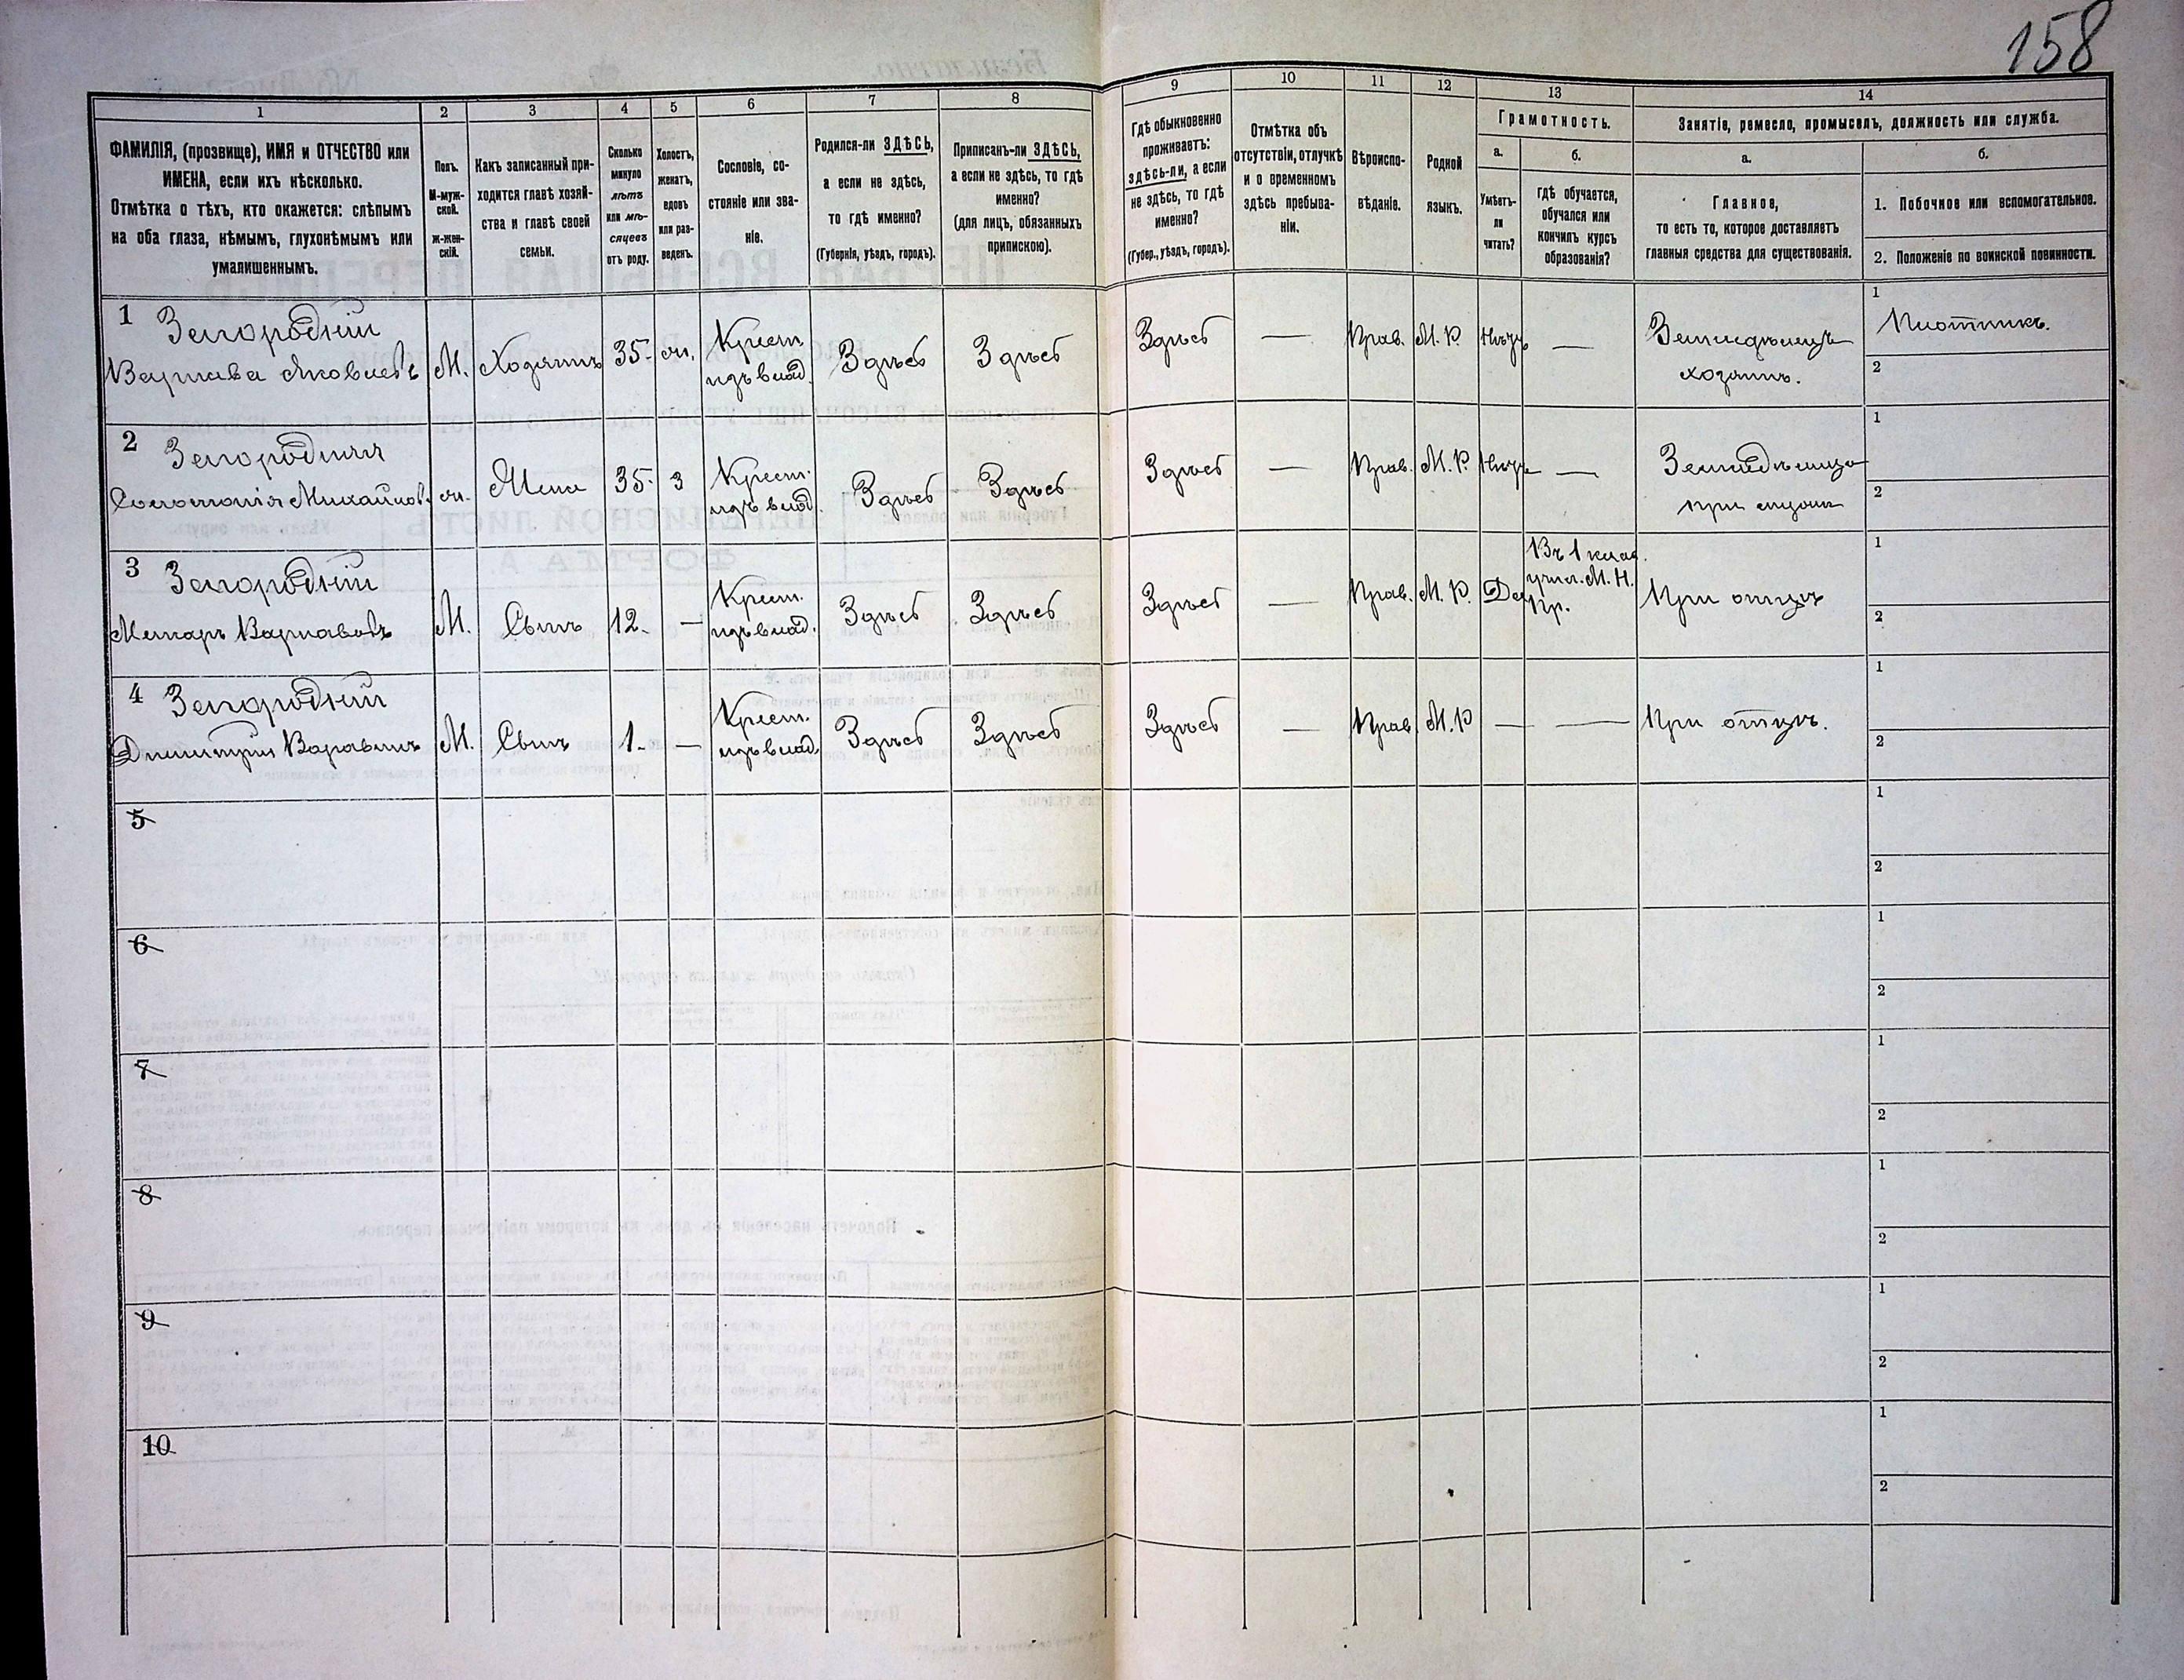 158
1
2
3
4
5
6
7
8
9
10
11
12
13
14
ФАМИЛІЯ, (прозвище), ИМЯ и ОТЧЕСТВО или
ИМЕНА, если ихъ нѣсколько.
Отмѣтка о тѣхъ, кто окажется: слѣпымъ
на оба глаза, нѣмымъ, глухонѣмымъ или
умалишеннымъ.
Полъ.
М-муж-
ской.
ж-жен-
скій.
Какъ записанный при-
ходится главѣ хозяй-
ства и главѣ своей
семьи.
Сколько
минуло
лѣтъ
или мѣ-
сяцевъ
отъ роду.
Холостъ,
женатъ,
вдовъ
или раз-
веденъ.
Сословіе, со-
стояніе или зва-
ніе.
Родился-ли ЗДѢСЬ,
а если не здѣсь,
то гдѣ именно?
(Губернія, уѣздъ, городъ).
Приписанъ-ли ЗДѢСЬ,
а если не здѣсь, то гдѣ
именно?
(для лицъ, обязанныхъ
припискою).
Гдѣ обыкновенно
проживаетъ:
здѣсь-ли, а если
не здѣсь, то гдѣ
именно?
(Губер., уѣздъ, городъ).
Отмѣтка объ
отсутствіи, отлучкѣ
и о временномъ
здѣсь пребыва-
ніи.
Вѣроиспо-
вѣданіе.
Родной
языкъ.
Грамотность.
а.
Умѣетъ-
ли
читать?
б.
гдѣ обучается,
обучался или
кончилъ курсъ
образованія?
Занятіе, ремесло, промыселъ, должность или служба.
а.
Главное,
то есть то, которое доставляетъ
главныя средства для существованія.
б.
1. Побочное или вспомогательное.
2. Положеніе по воинской повинности.
1
Загородній
Варнава Яковлевъ
М.
Хозяинъ
35.
ж.
Крест.
изъ влад.
Здѣсь
Здѣсь
Здѣсь
—
Прав.
М. Р.
Нѣтъ
—
Земледѣлецъ
хозяинъ.
1
Плотникъ.
2
2
Загородняя
Соломонія Михайлов.
ж.
Жена
35.
З
Крест.
изъ влад.
Здѣсь
Здѣсь
Здѣсь
—
Прав.
М. Р.
Нѣтъ
—
Земледѣлица
при мужѣ
1
2
3
Загородній
Макаръ Варнавовъ
М.
Сынъ
12.
—
Крест.
изъ влад.
Здѣсь
Здѣсь
Здѣсь
—
Прав.
М. Р.
Да
Въ 1 клас.
учил. М. Н.
Пр.
При отцѣ
1
2
4
Загородній
Димитрій
М.
Сынъ
1.
—
Крест.
изъ влад.
Здѣсь
Здѣсь
Здѣсь
—
Прав.
М. Р
—
—
При отцѣ.
1
2
5
1
2
6
1
2
7
1
2
8
1
2
9
1
2
10
1
2